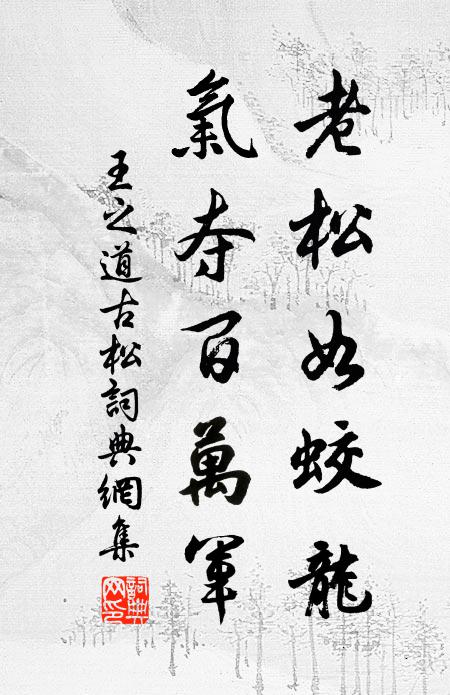 老松如蛟龍
氣夺百萬軍
王之道古松詞典網集
詞典網印